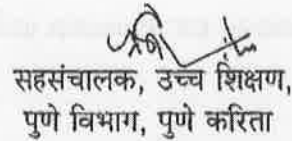 सहसंचालक, उच्च शिक्षण,
पुणे विभाग, पुणे करिता